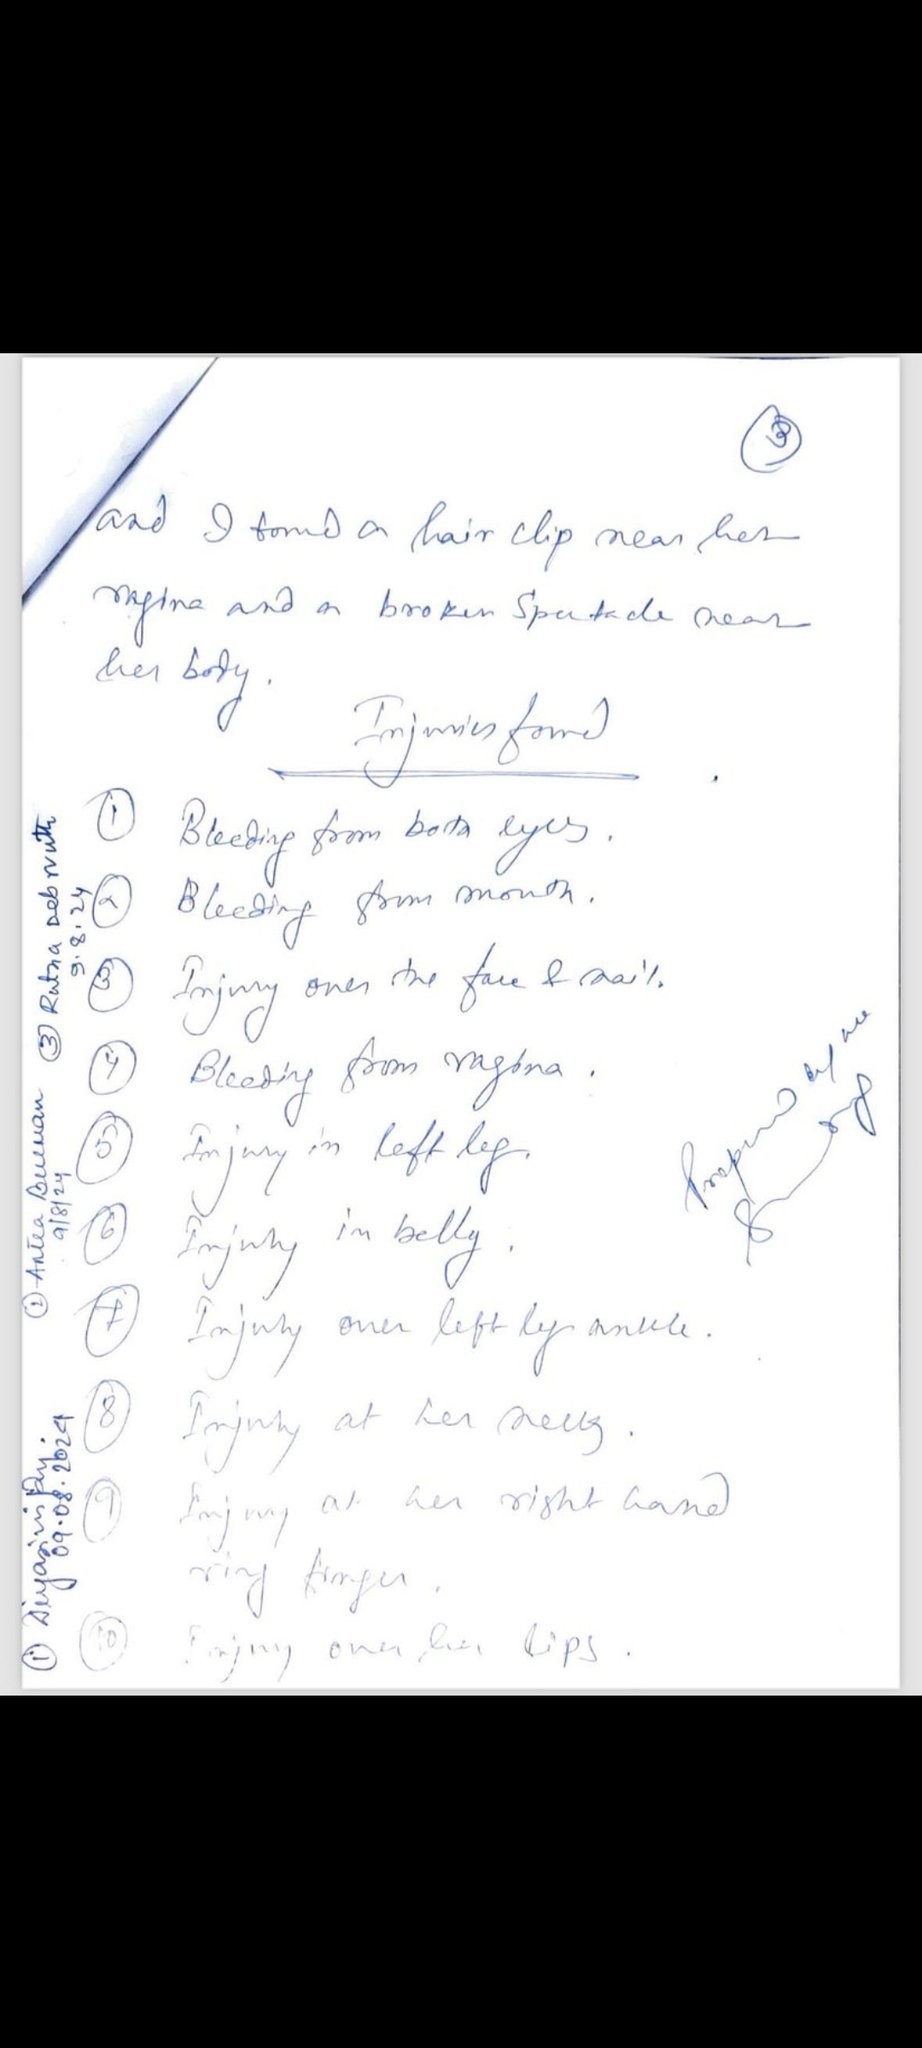 3
and I found a hair clip near her
vagina and a broken Spectacle near
her body.
Injuries found
1 Bleeding from both eyes.
2 Bleeding from mouth.
3 Injury over the face & nail.
4 Bleeding from vagina.
5 Injury in left leg.
6 Injury in belly.
7 Injury over left leg ankle.
8 Injury at her neck.
9 Injury at her right hand
ring finger.
10 Injury over her lips.
Prepared by me
3 Ratna Debnath
9.8.24
2 Antea Burman
9/8/24
1
09.08.2024